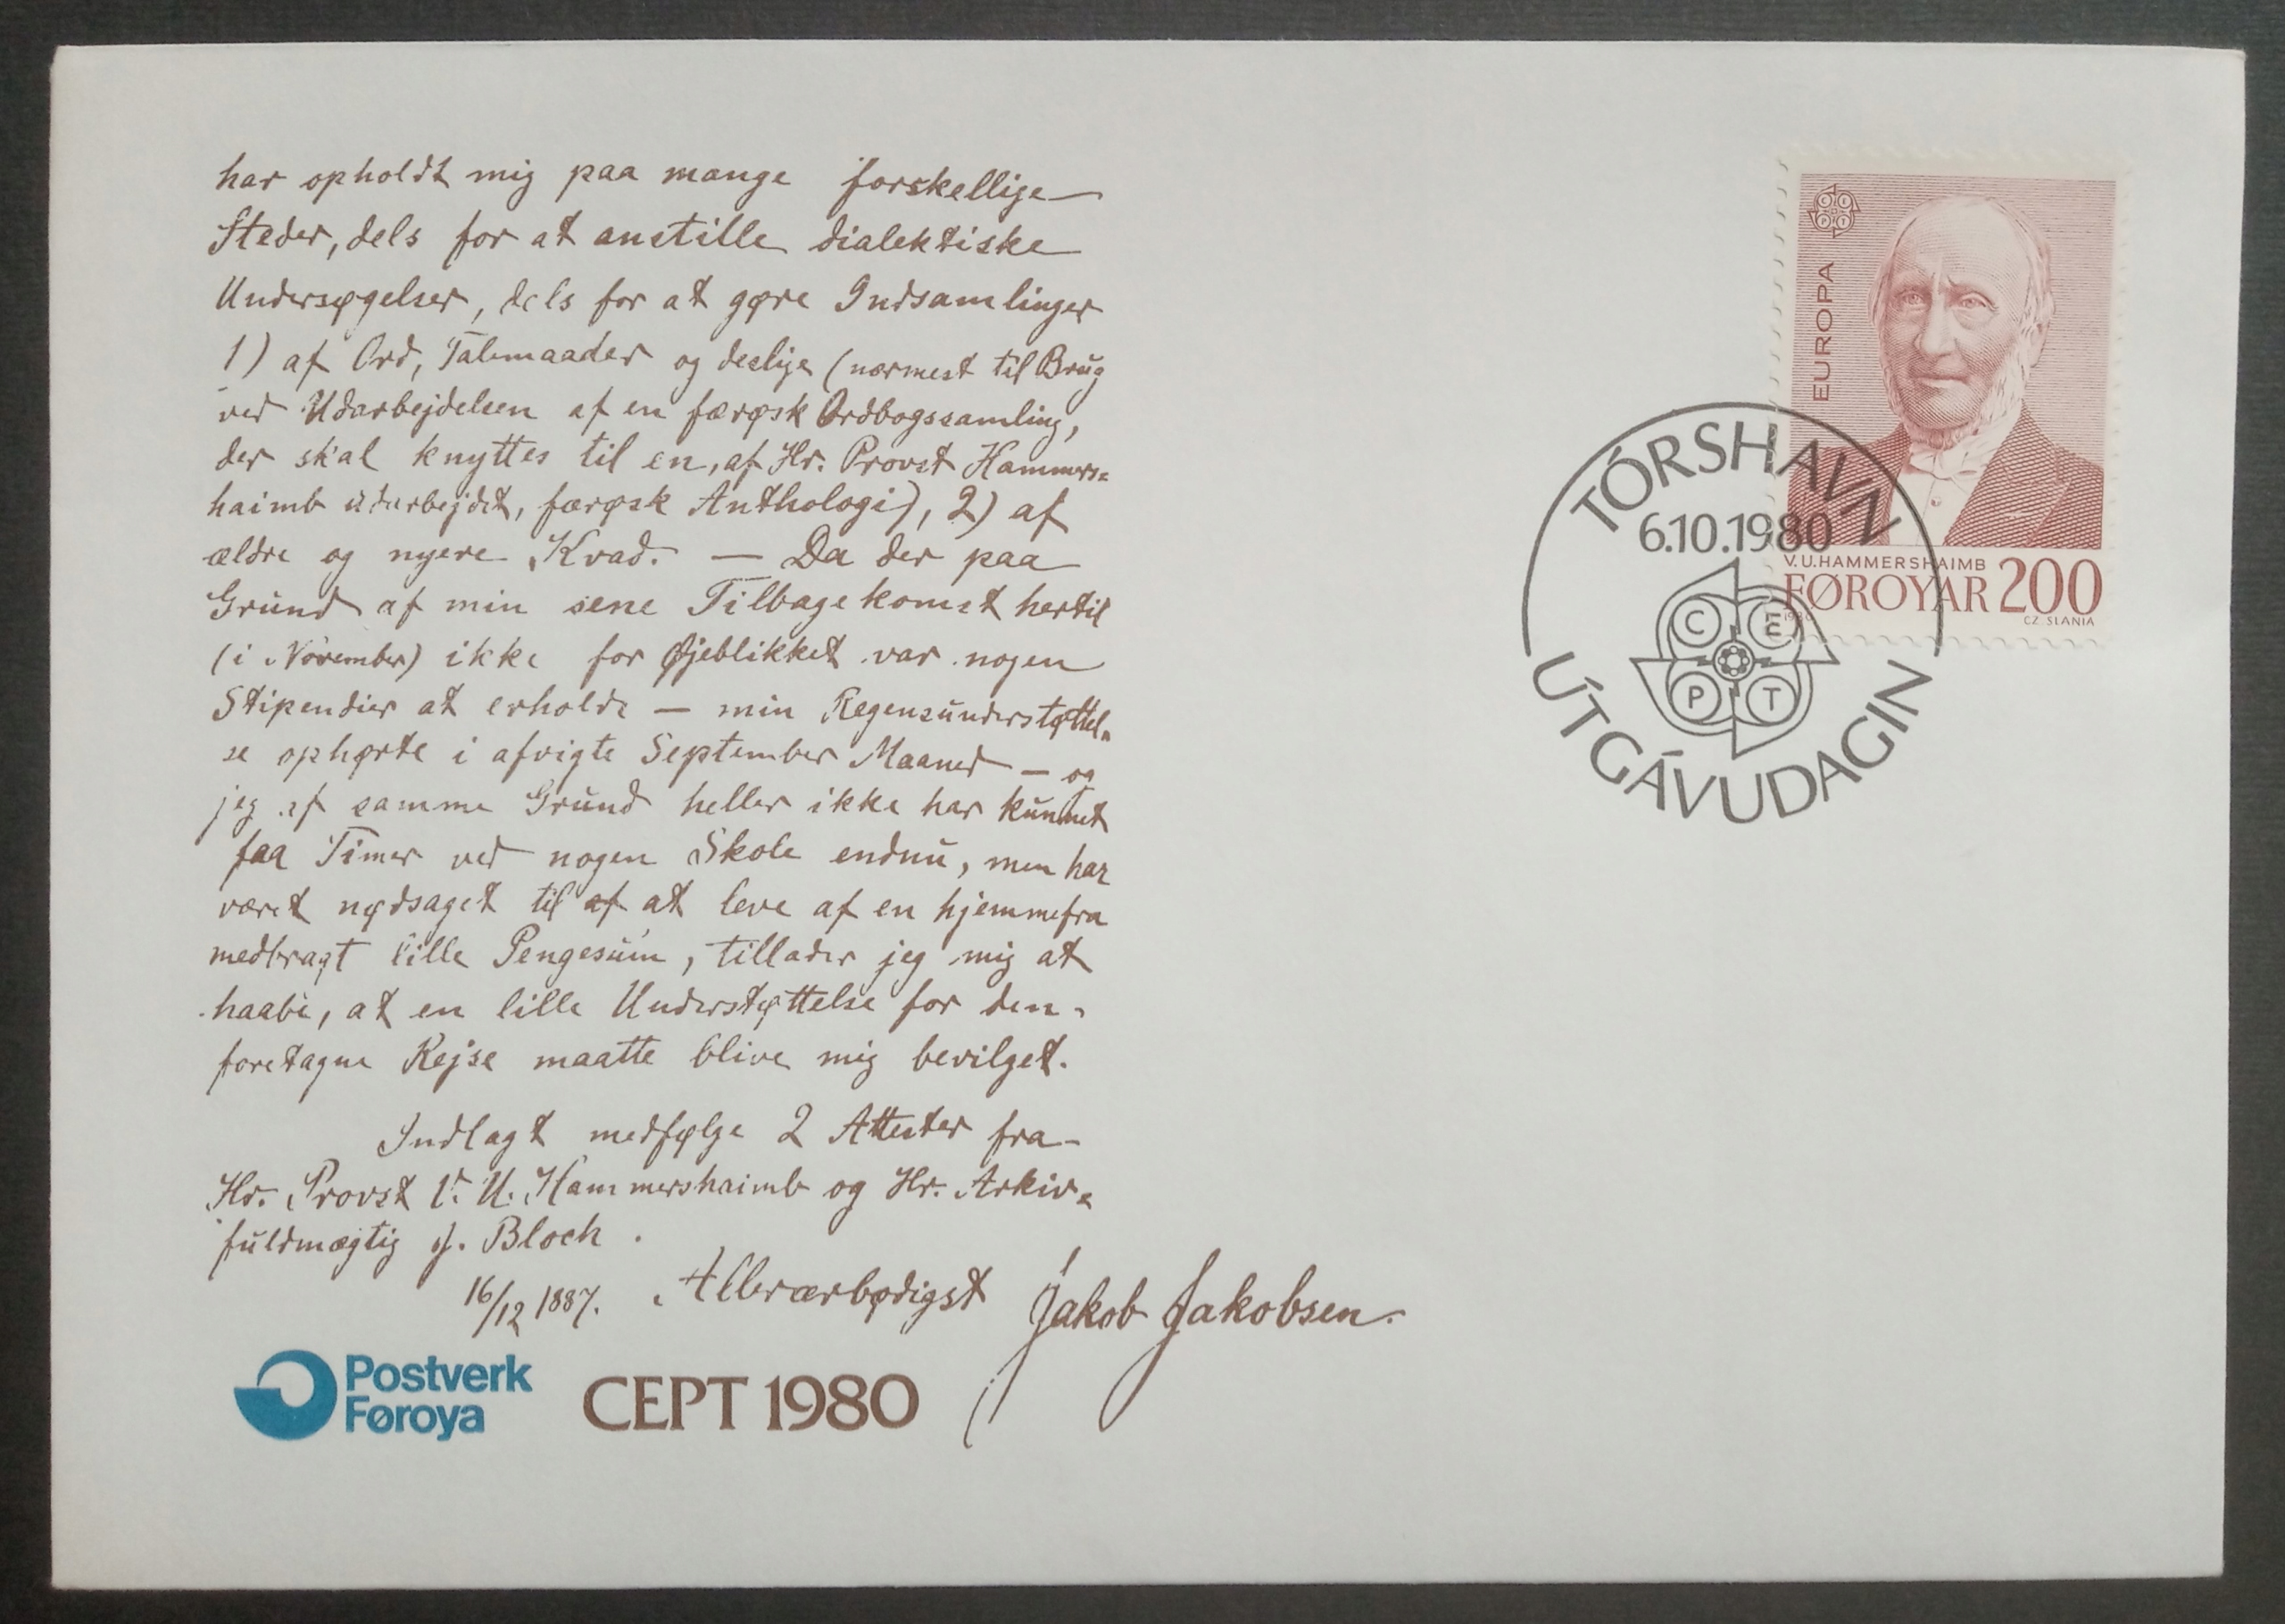 har opholdt mig paa mange forskellige
Steder, dels for at anstille dialektiske
Undersøgelser, dels for at gøre Indsamlinger
1) af Ord, Talemaader og deslige (nærmest til Brug
ved Udarbejdelsen af en færøsk Ordbogssamling,
der skal knyttes til en, af Hr. Provst Hammers=
haimb udarbejdet, færøsk Anthologi), 2) af
ældre og nyere Kvad. — Da der paa
Grund af min sene Tilbagekomst hertil
(i November) ikke for Øjeblikket var nogen
Stipendier at erholde — min Regensunderstøttel=
se ophørte i afvigte September Maaned — og
jeg af samme Grund heller ikke har kunnet
faa Timer ved nogen Skole endnu, men har
været nødsaget til af at leve af en hjemmefra
medbragt lille Pengesum, tillader jeg mig at
haabe, at en lille Understøttelse for den
foretagne Rejse maatte blive mig bevilget.
Indlagt medfølge 2 Attester fra
Hr. Provst V. U. Hammershaimb og Hr. Arkiv=
fuldmægtig J. Bloch.
16/12 1887. Allerærbødigst Jakob Jakobsen.
Postverk
Føroya
CEPT 1980
EUROPA
V.U.HAMMERSHAIMB
FØROYAR 200
1980
CZ SLANIA
TÓRSHAVN
6.10.1980
C E
P T
ÚTGÁVUDAGIN